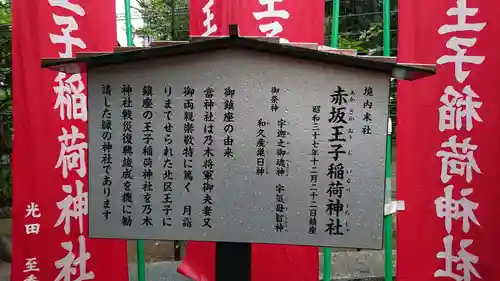 境内末社
赤坂王子稲荷神社
あかさかおうじいなりじんしゃ
昭和三十七年十二月二十二日鎮座
御祭神 宇迦之御魂神 宇気母智神
和久産巣日神
御鎮座の由来
当神社は乃木将軍御夫妻又
御両親崇敬特に篤く 月詣
りまでせられた北区王子に
鎮座の王子稲荷神社を乃木
神社戦災復興竣成を機に勧
請した縁の神社であります
王子稲荷神社
光田 至
王子稲荷神社